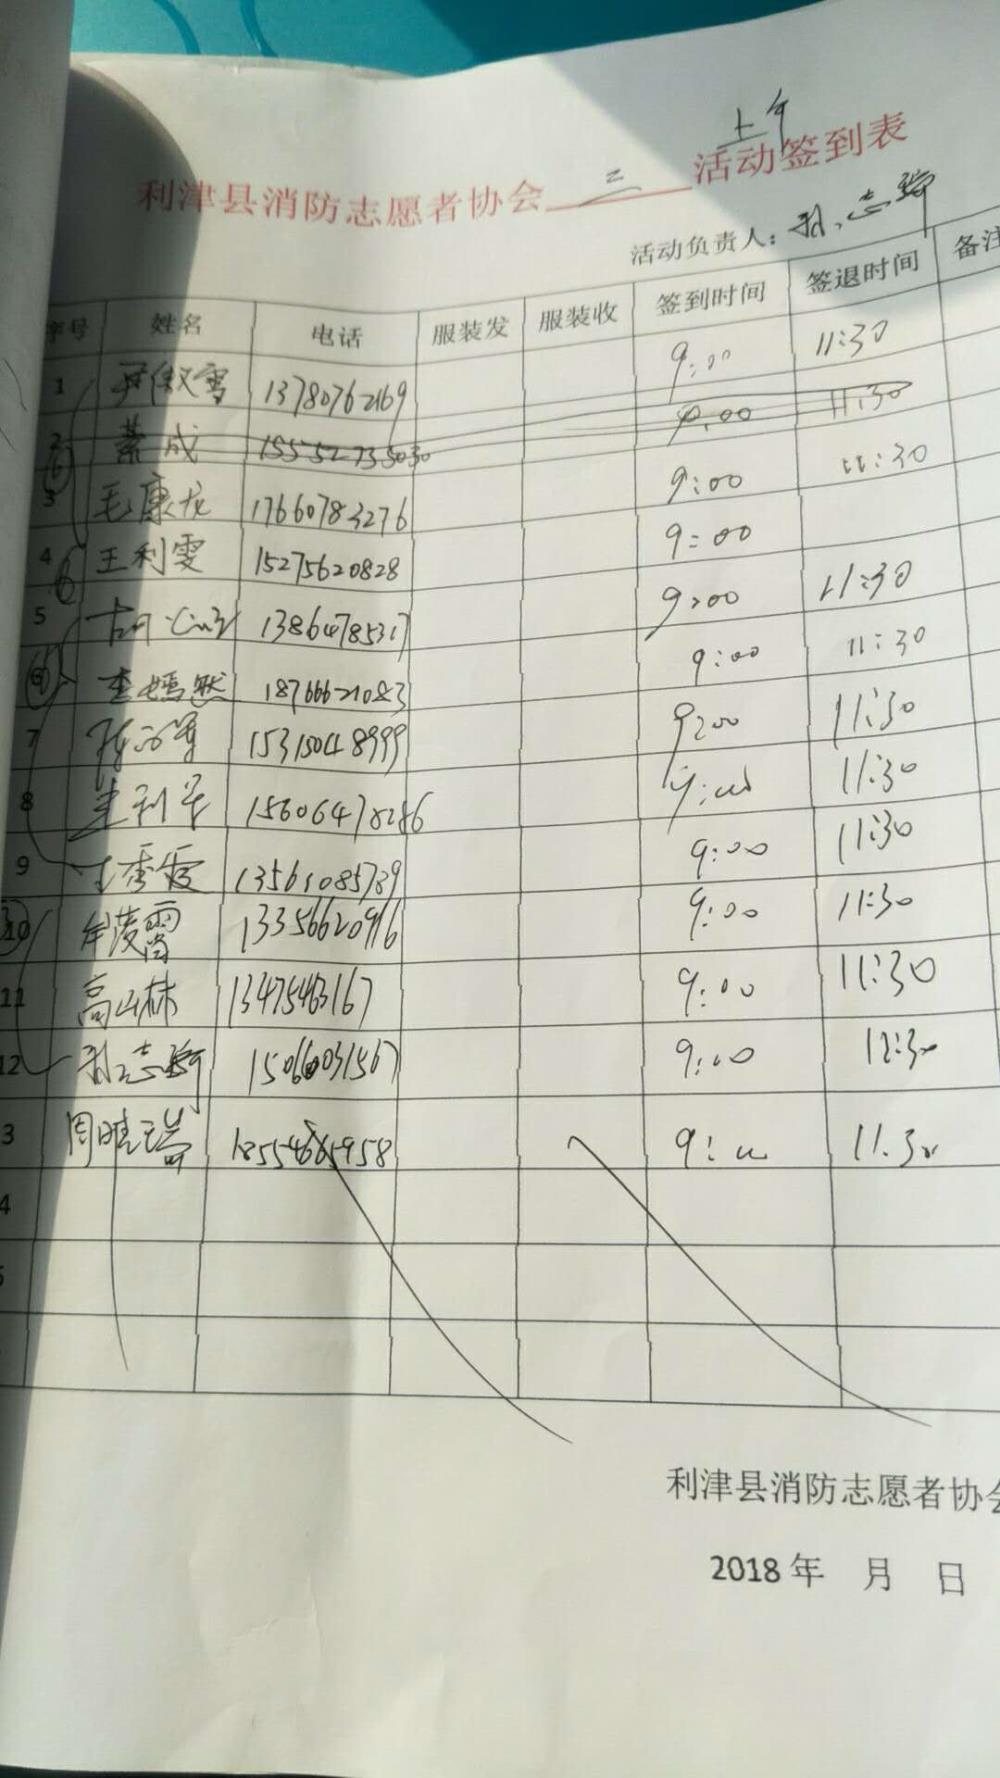 上午
利津县消防志愿者协会 三 活动签到表
活动负责人：孙志琦
序号 姓名 电话 服装发 服装收 签到时间 签退时间 备注
1 傲雪 13780762169 9:00 11:30
2 綦成 15552735030 9:00 11:30
3 毛康龙 17660783276 9:00 11:30
4 王利雯 15275620828 9:00
5 13864785317 9:00 11:30
6 李嫣然 18766621083 9:00 11:30
7 15315048999 9:00 11:30
8 9:00 11:30
9 王秀霞 13561085789 9:00 11:30
10 牟凌霄 13356620916 9:00 11:30
11 高山林 13475463167 9:00 11:30
12 孙志琦 15066031567 9:00 11:30
3 周 9:00 11:30
4
利津县消防志愿者协会
2018 年 月 日